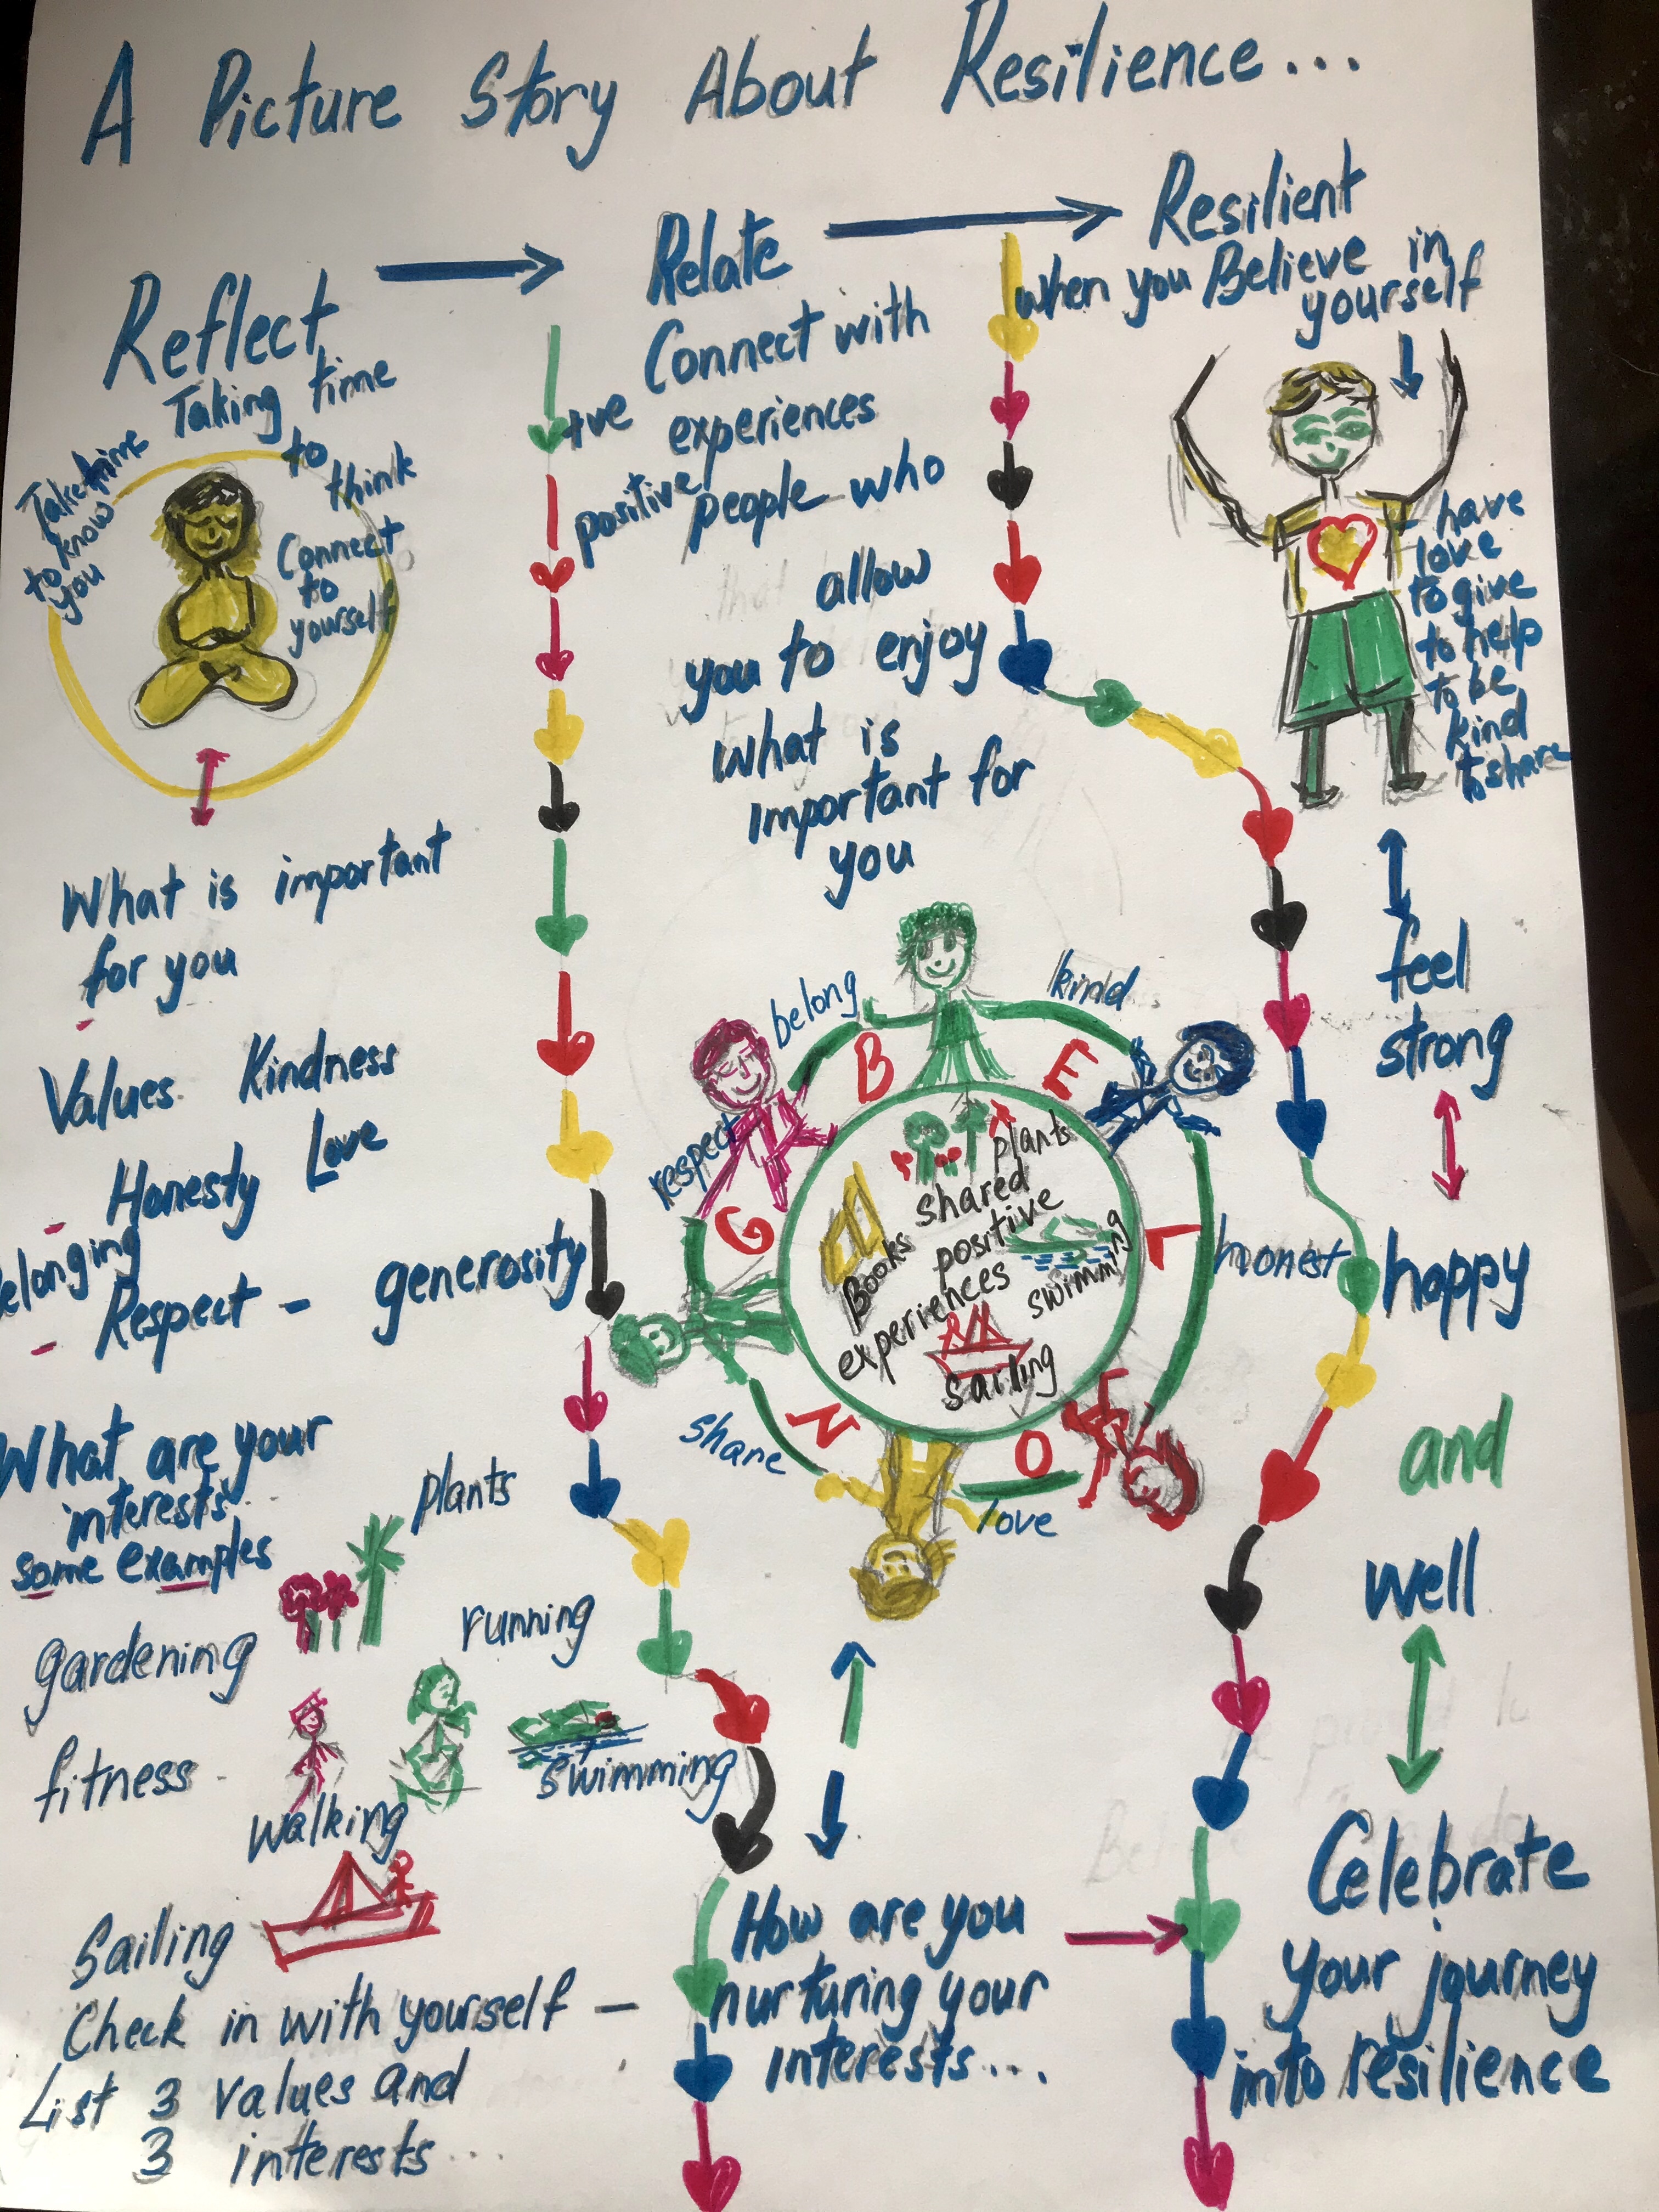 A Picture Story About Resilience...
Reflect
Taking time
to
think
Take time
to know
you
Connect
to
yourself
What is important
for you
- Values. Kindness
- Honesty Love
Belonging
- Respect - generosity
What are your
interests
some examples
plants
gardening
running
fitness -
walking
swimming
Sailing
Check in with yourself -
List 3 values and
3 interests...
Relate
Connect with
+ve experiences
positive people who
allow
you to enjoy
what is
important for
you
belong
kind
respect
honest
share
love
B E L O N G
plants
shared
positive
experiences
Books
swimming
sailing
How are you
nurturing your
interests....
Resilient
when you Believe in
yourself
- have
love
to give
to help
to be
kind
to share
feel
strong
happy
and
well
Celebrate
your journey
into resilience